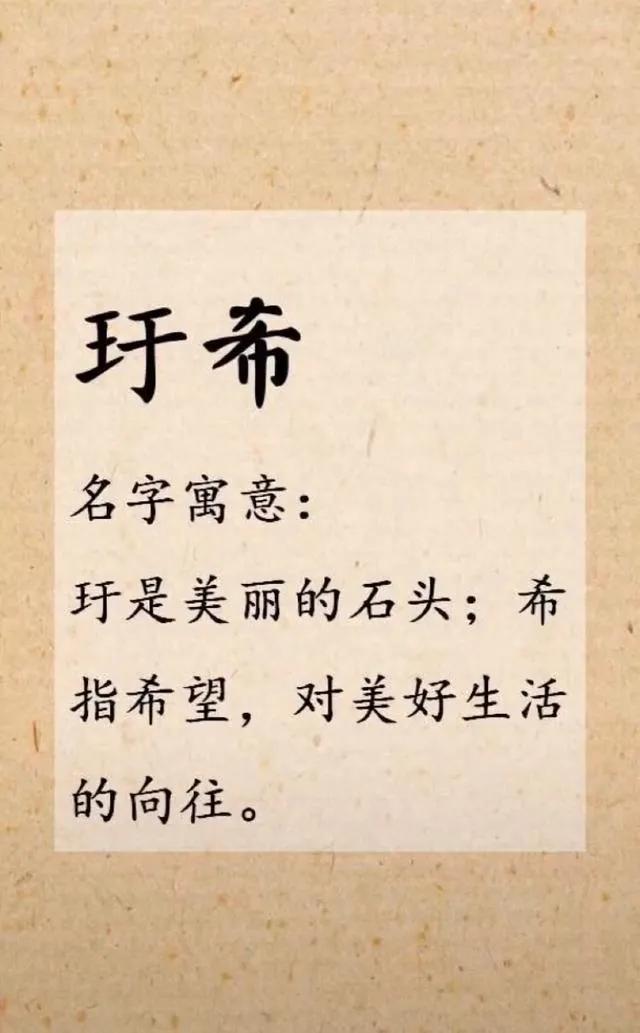 玗希
名字寓意：
玗是美丽的石头；希
指希望，对美好生活
的向往。